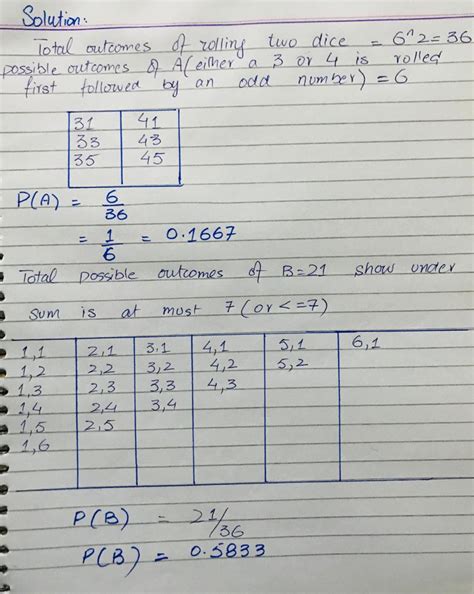 Solution:
Total outcomes of rolling two dice = 6^2 = 36
possible outcomes of A(either a 3 or 4 is rolled
first followed by an odd number) = 6
31 41
33 43
35 45
P(A) = 6/36
= 1/6 = 0.1667
Total possible outcomes of B=21 show under
sum is at most 7 (or <=7)
1,1 2,1 3,1 4,1 5,1 6,1
1,2 2,2 3,2 4,2 5,2
1,3 2,3 3,3 4,3
1,4 2,4 3,4
1,5 2,5
1,6
P(B) = 21/36
P(B) = 0.5833